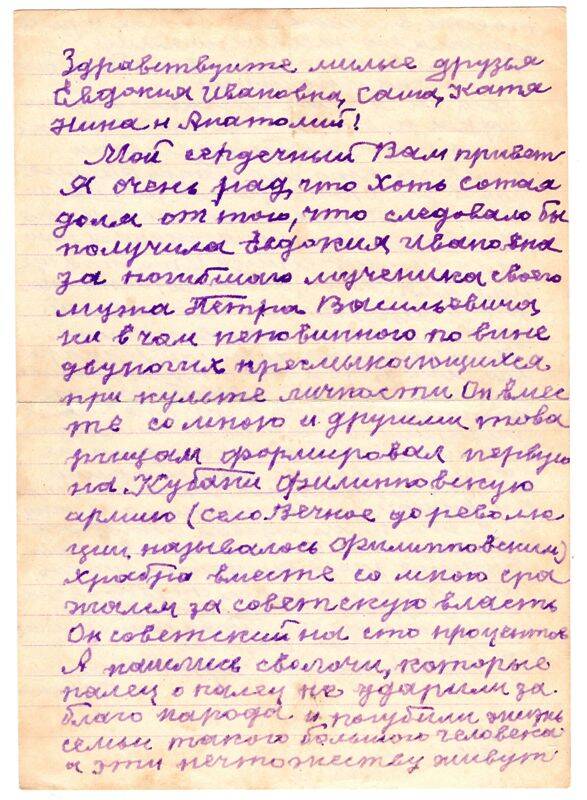 Здравствуите милые друзья
Евдокия Ивановна, Саша, Катя
Нина и Анатолий!
Мой сердечный Вам привет
Я очень рад, что хоть сотая
доля от того, что следовало бы
получила Евдокия Ивановна
за погибшаго мученика своего
мужа Петра Васильевича,
ни в чем неповинного по вине
двуногих пресмыкающихся
при культе личности Он вмес
те со мною и другими това
рищам формировал первую
на Кубани Филипповскую
армию (село Вечное до револю
ции называлось Филипповским)
храбро вместе со мною сра
жался за советскую власть
Он советский на сто процентов
А нашлись сволочи, которые
палец о палец не ударили за
благо народа и погубили жизнь
семьи такого большого человека
а эти нечтожеству живут